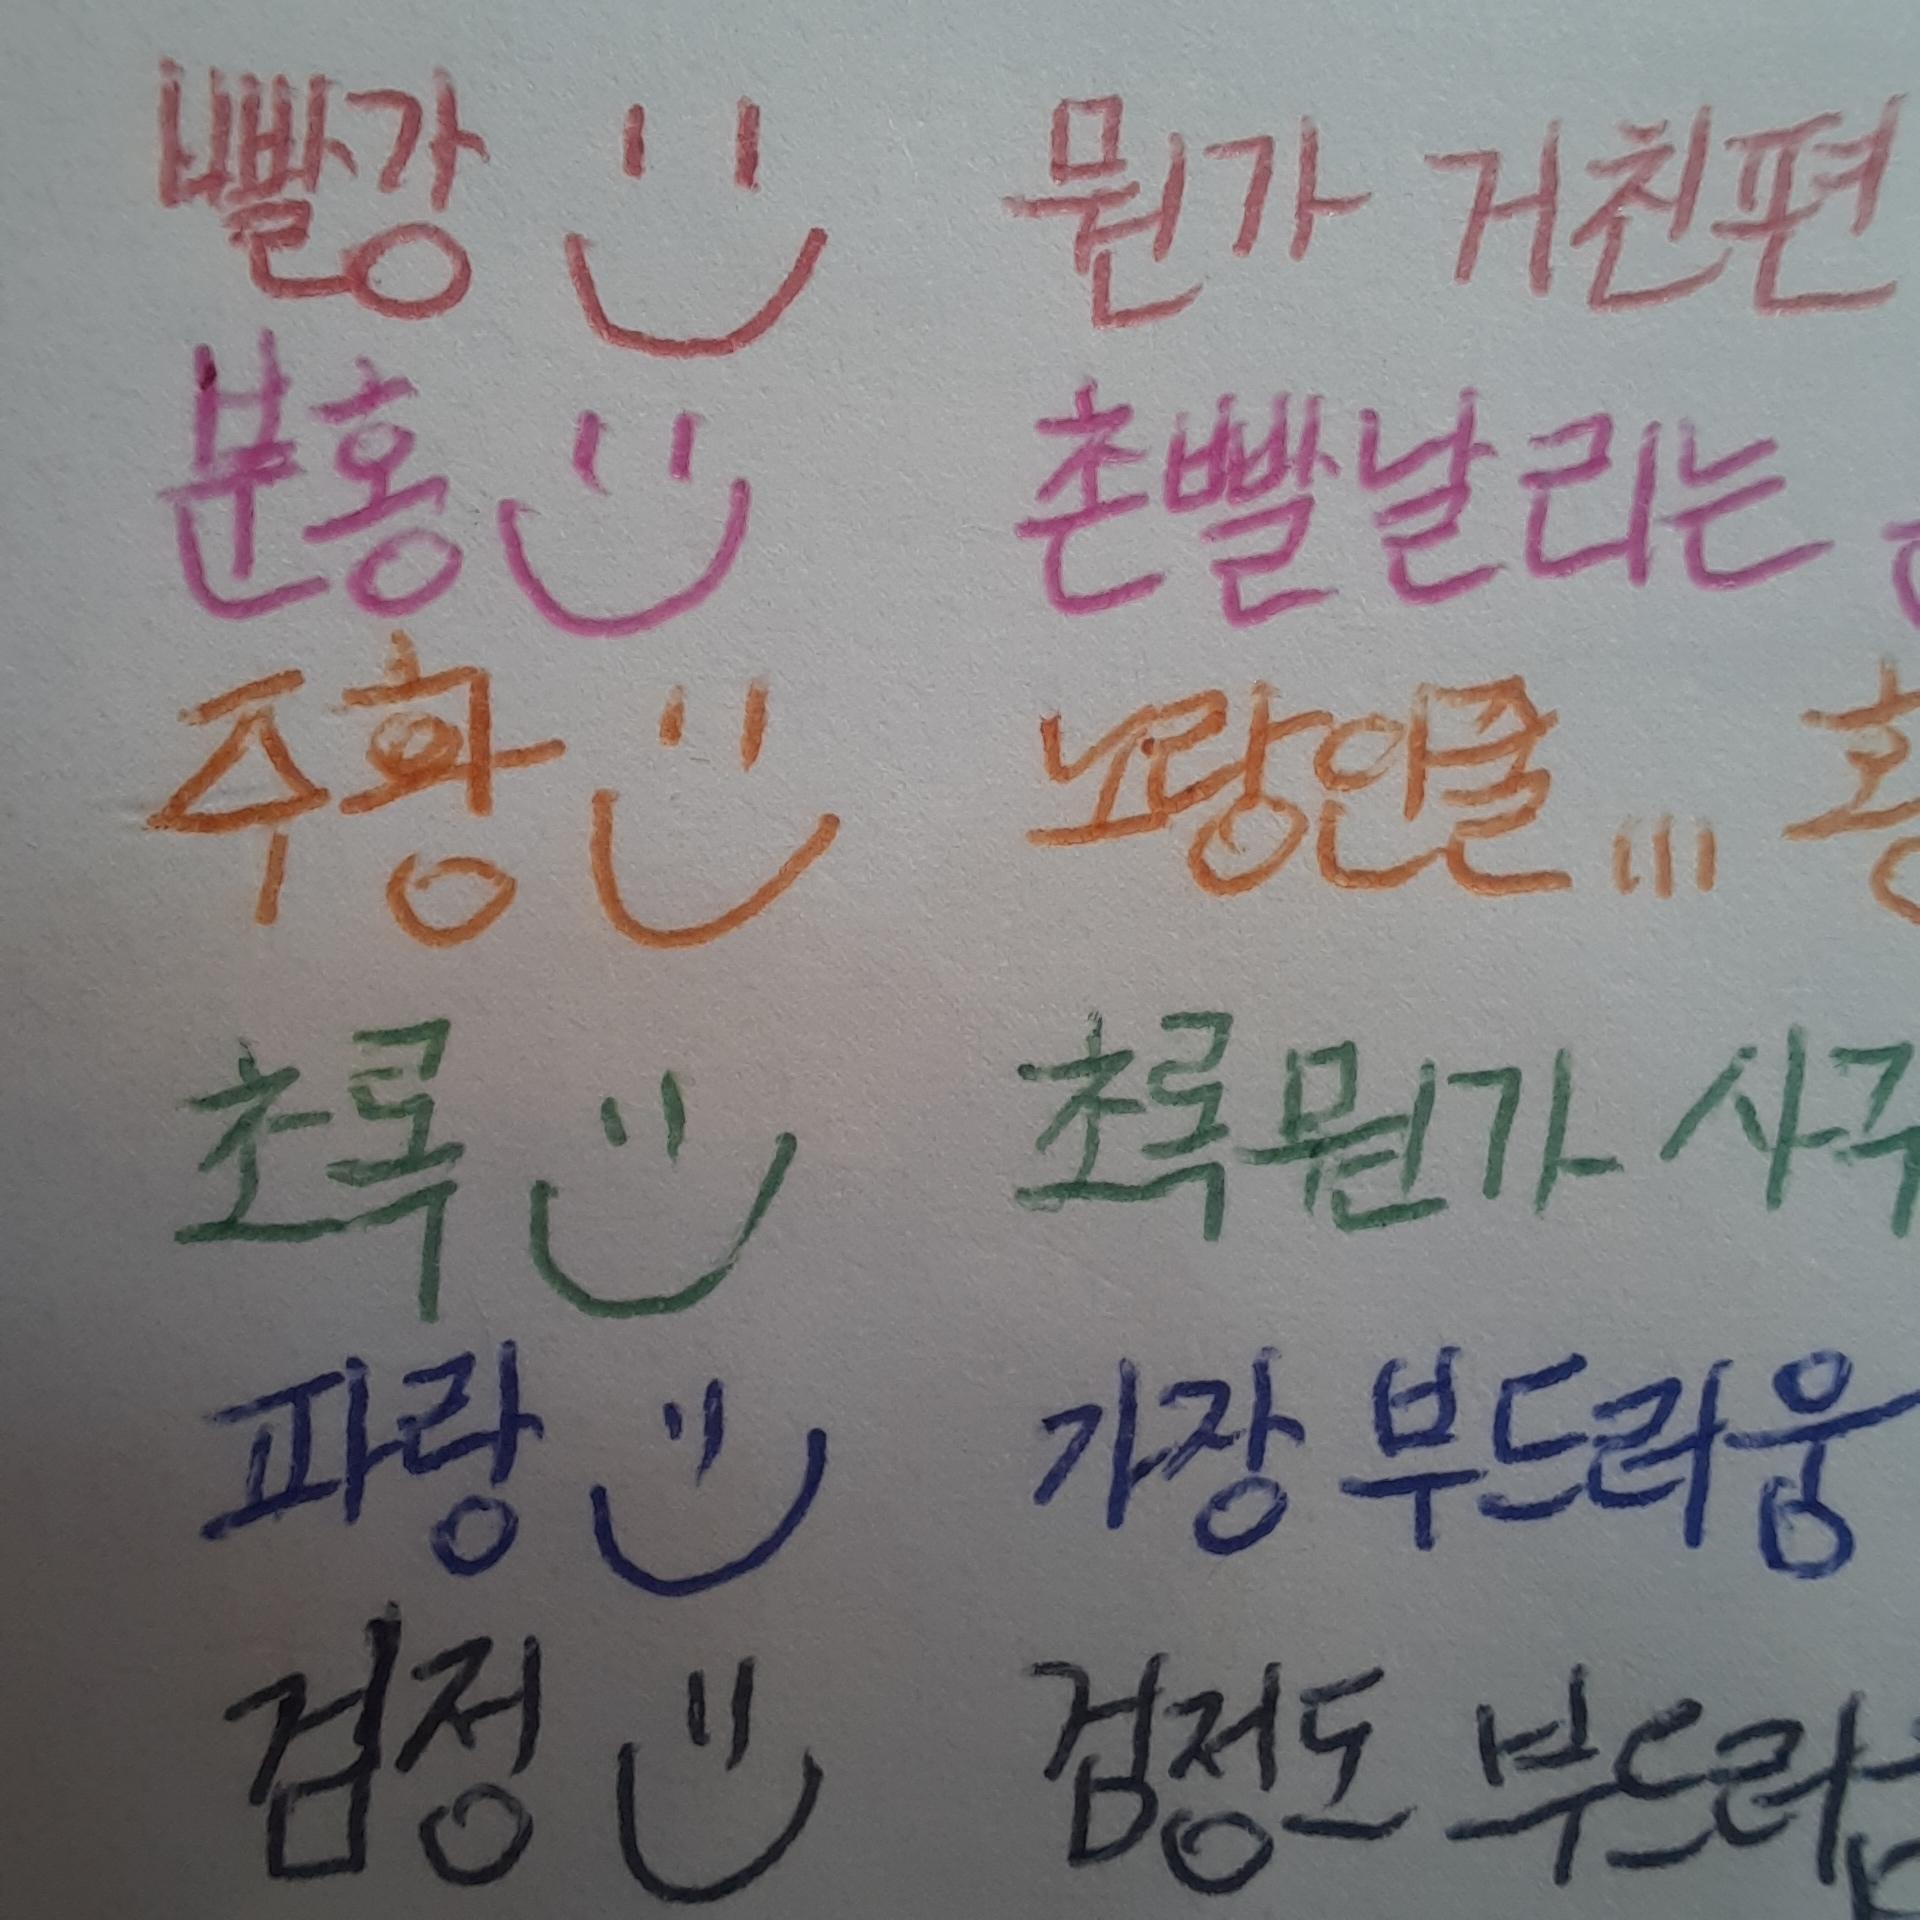 빨강 뭔가 거친편
분홍 촌빨날리는
주황 노랑인줄...
초록 초록뭔가
파랑 가장 부드러움
검정 검정도 부드러